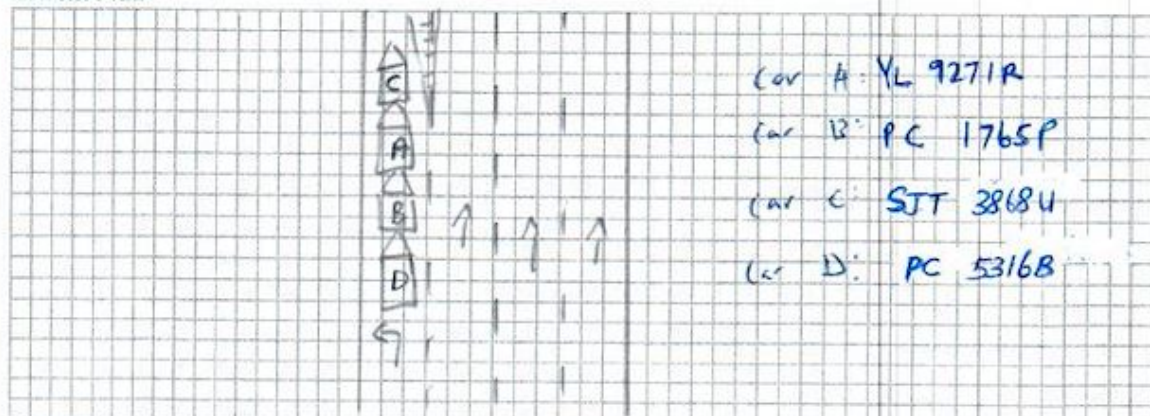 C
A
B
D
Car A: YL 9271R
Car B: PC 1765P
Car C: SJT 3868U
Car D: PC 5316B